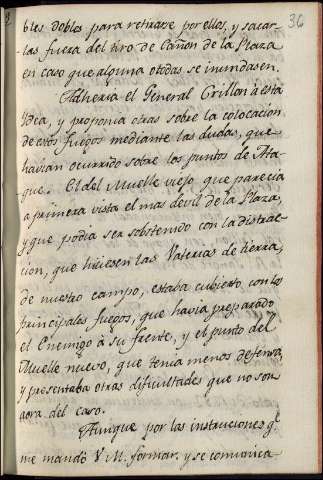 36
bles dobles para retirarse por ellos, y sacar-
las fuera del tiro de Cañon de la Plaza
en caso que alguna otodas se inundasen.
Adheria el General Crillon à esta
Ydea, y proponia otras sobre la colocacion
de estos fuegos mediante las dudas, que
havian ocurrido sobre los puntos de Ata-
que. El del Muelle viejo que parecia
a primera vista el mas devil de la Plaza,
y que podia ser sobstenido con la distrac-
cion, que hiciesen las Vaterias de tierra,
de nuestro campo, estaba cubierto con los
principales fuegos, que havia preparado
el Enemigo à su frente, y el punto del
Muelle nuevo, que tenia menos defensa,
y presentaba otras dificultades que no son
aora del caso.
Aunque por las instrucciones q.e
me mandò V.M. formar, y se comunica-